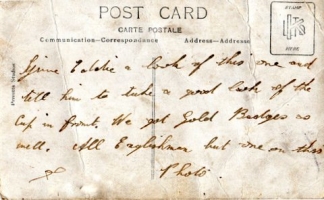 POST CARD
CARTE POSTALE
Communication—Correspondence Address—Addresse
STAMP
HERE
Give Eddie a look of this one and
tell him to take a good look of the
Cup in front. We got Gold Badges as
well. All Englishmen but one on this
Photo.